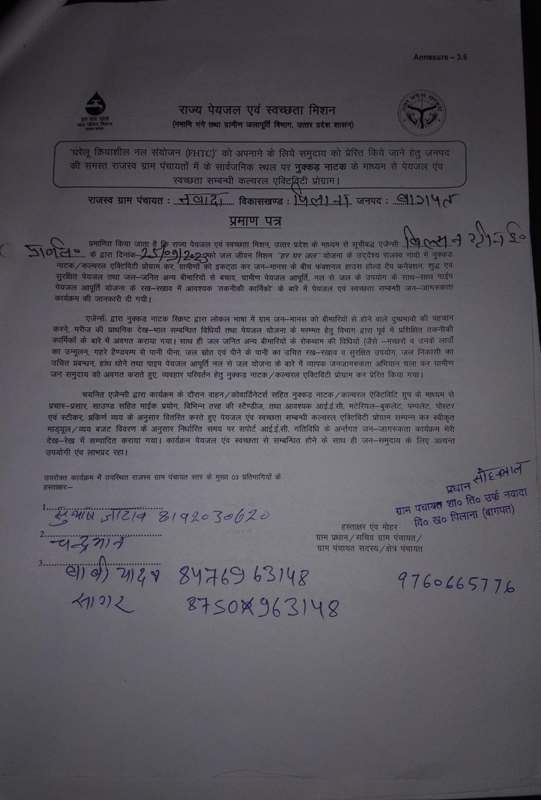 Annexure - 3.6
राज्य पेयजल एवं स्वच्छता मिशन
(नमामि गंगे तथा ग्रामीण जलापूर्ति विभाग, उत्तर प्रदेश शासन)
'घरेलू क्रियाशील नल संयोजन (FHTC)' को अपनाने के लिये समुदाय को प्रेरित किये जाने हेतु जनपद
की समस्त राजस्व ग्राम पंचायतों में के सार्वजनिक स्थल पर नुक्कड़ नाटक के माध्यम से पेयजल एंव
स्वच्छता सम्बन्धी कल्चरल एक्टिविटी प्रोग्राम।
राजस्व ग्राम पंचायत : नवादा विकासखण्ड : पिलाना जनपद : बागपत
प्रमाण पत्र
प्रमाणित किया जाता है कि राज्य पेयजल एवं स्वच्छता मिशन, उत्तर प्रदेश के माध्यम से सूचीबद्ध एजेन्सी
के द्वारा दिनांक- को जल जीवन मिशन "हर घर जल" योजना के उद्देश्य राजस्व गावों में नुक्कड़
नाटक/कल्चरल एक्टिविटी प्रोग्राम कर, ग्रामीणों को इकट्ठा कर जन-मानस के बीच फंक्शनल हाउस होल्ड टैप कनेक्शन, शुद्ध एवं
सुरक्षित पेयजल तथा जल-जनित अन्य बीमारियों से बचाव, ग्रामीण पेयजल आपूर्ति, नल से जल के उपयोग के साथ-साथ पाईप
पेयजल आपूर्ति योजना के रख-रखाव में आवश्यक तकनीकी कार्मिकों के बारे में पेयजल एवं स्वच्छता सम्बन्धी जन-जागरूकता
कार्यक्रम की जानकारी दी गयी।
एजेन्सी द्वारा नुक्कड़ नाटक स्क्रिप्ट द्वारा लोकल भाषा में ग्राम जन-मानस को बीमारियों से होने वाले दुष्प्रभावों की पहचान
करने, मरीज की प्राथमिक देख-भाल सम्बन्धित विधियाँ तथा पेयजल योजना के मरम्मत हेतु विभाग द्वारा पूर्व में प्रशिक्षित तकनीकी
कार्मिकों के बारे में अवगत कराया गया। साथ ही जल जनित अन्य बीमारियों के रोकथाम की विधियाँ (जैसे -मच्छरों व उनके लार्वा
का उन्मूलन, गहरे हैण्डपम्प से पानी पीना, जल स्रोत एवं पीने के पानी का उचित रख-रखाव व सुरक्षित उपयोग, जल निकासी का
उचित प्रबन्धन, हांथ धोने तथा पाइप पेयजल आपूर्ति नल से जल योजना के बारे में व्यापक जनजागरूकता अभियान चला कर ग्रामीण
जन समुदाय को अवगत कराते हुए, व्यवहार परिवर्तन हेतु नुक्कड़ नाटक/कल्चरल एक्टिविटी प्रोग्राम कर प्रेरित किया गया।
चयनित एजेन्सी द्वारा कार्यक्रम के दौरान वाहन/कोआर्डिनेटर्स सहित नुक्कड़ नाटक/कल्चरल एक्टिविटि ग्रुप के माध्यम से
प्रचार-प्रसार, साउण्ड सहित माईक प्रयोग, विभिन्न तरह की स्टैण्डीज, तथा आवश्यक आई.ई.सी. मटेरियल-बुकलेट, पम्पलेट, पोस्टर
एवं स्टीकर, प्रकिर्ण व्यय के अनुसार वितरित करते हुए पेयजल एवं स्वच्छता सम्बन्धी कल्चरल एक्टिविटी प्रोग्राम सम्पन्न कर स्वीकृत
माड्यूल/व्यय बजट विवरण के अनुसार निर्धारित समय पर सपोर्ट आई.ई.सी. गतिविधि के अर्न्तगत जन-जागरूकता कार्यक्रम मेरी
देख-रेख में सम्पादित कराया गया। कार्यक्रम पेयजल एवं स्वच्छता से सम्बन्धित होने के साथ ही जन-समुदाय के लिए अत्यन्त
उपयोगी एवं लाभप्रद रहा।
उपरोक्त कार्यक्रम में उपस्थित राजस्व ग्राम पंचायत स्तर के मुख्य 03 प्रतिभागियों के
हस्ताक्षर-
1. सुभाष जाटव 8192030620
2. चन्द्रभान
3. यादव 8476963148
सागर 963148
प्रधान
ग्राम पंचायत शा० ति० उर्फ नवादा
वि० ख० पिलाना (बागपत)
हस्ताक्षर एंव मोहर
ग्राम प्रधान/सचिव ग्राम पंचायत/
ग्राम पंचायत सदस्य/क्षेत्र पंचायत
9760665776